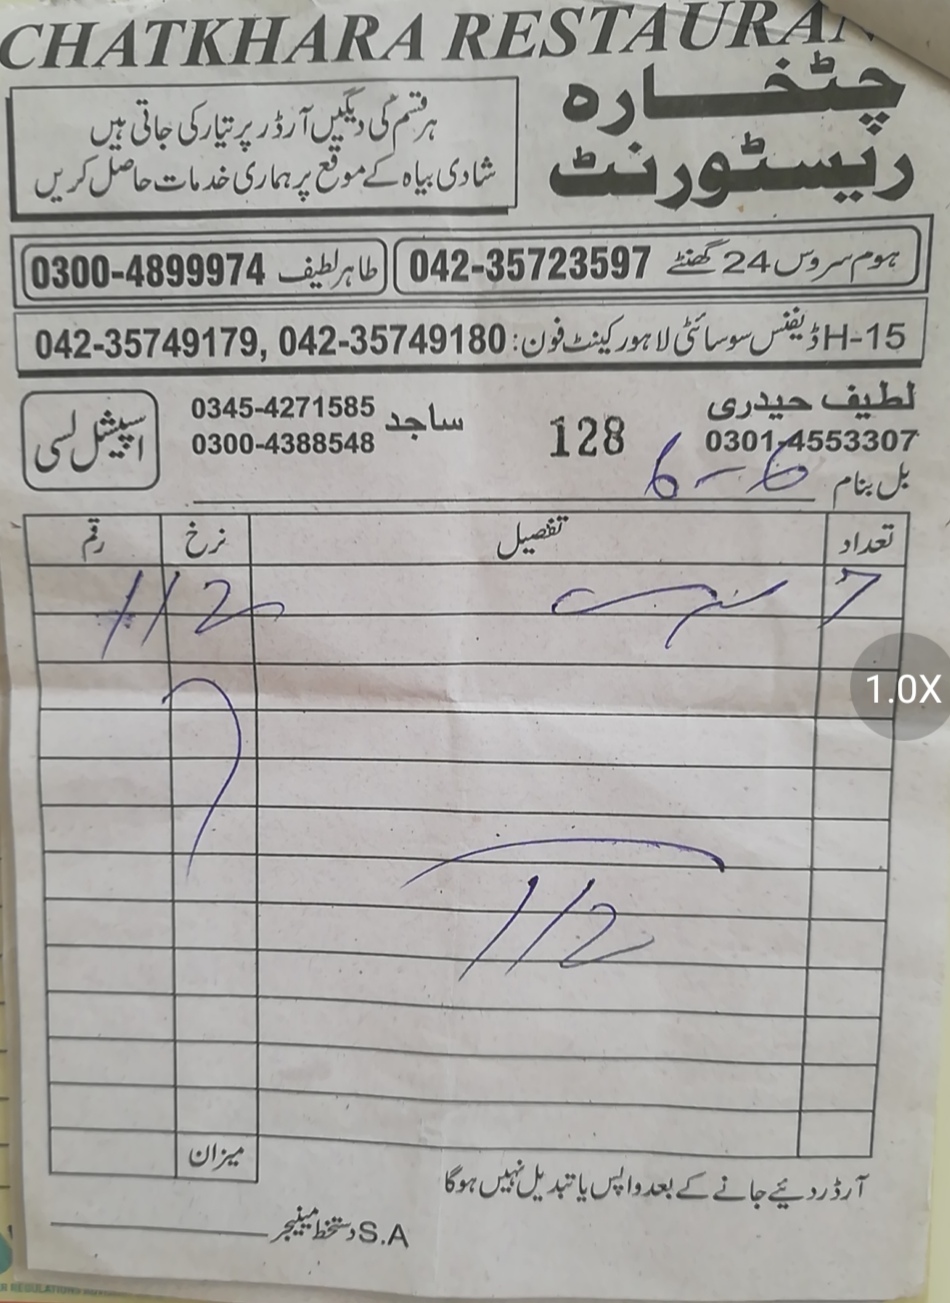 CHATKHARA RESTAURAN
چٹخارہ
ریسٹورنٹ
ہر قسم کی دیگیں آرڈر پر تیار کی جاتی ہیں
شادی بیاہ کے موقع پر ہماری خدمات حاصل کریں
ہوم سروس 24 گھنٹے 042-35723597
طاہر لطیف 0300-4899974
H-15 ڈیفنس سوسائٹی لاہور کینٹ فون: 042-35749180, 042-35749179
لطیف حیدری
0301-4553307
128
ساجد 0345-4271585
0300-4388548
اسپیشل لسی
بل بنام 6-6
تعداد تفصیل نرخ رقم
7 112
112
میزان
آرڈر دئیے جانے کے بعد واپس یا تبدیل نہیں ہوگا
S.A دستخط مینیجر
1.0X